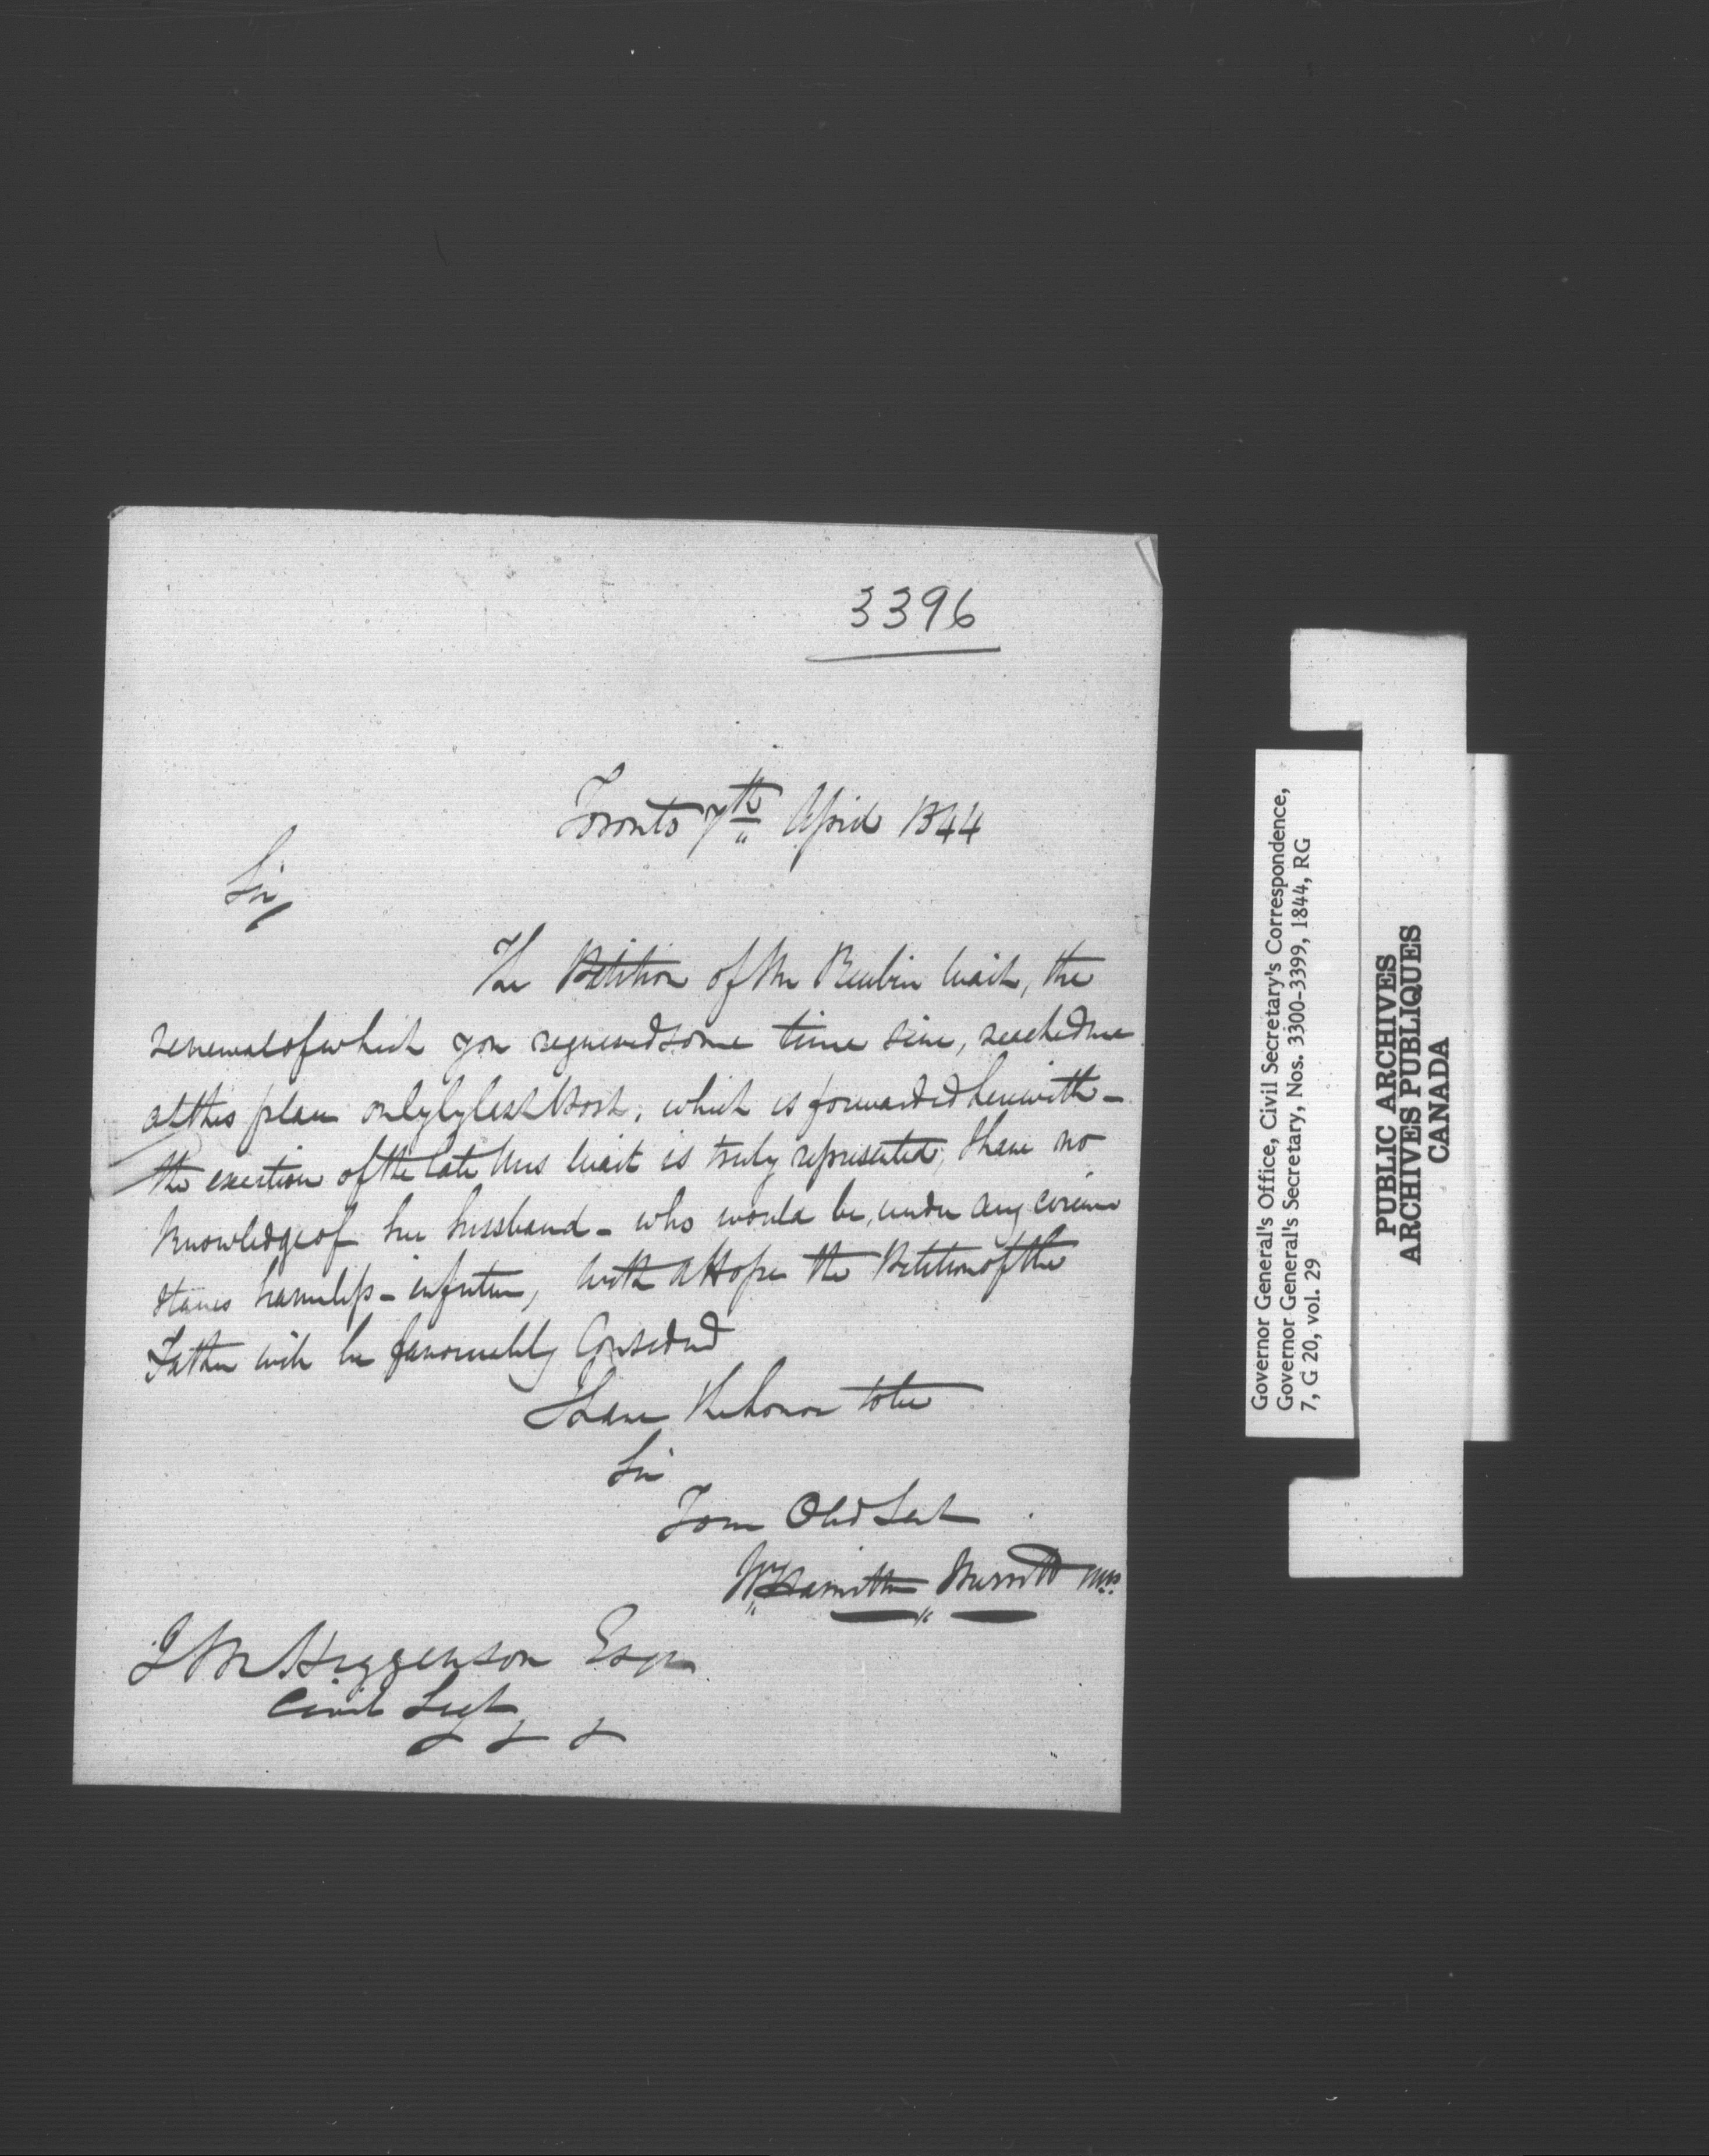 3396
Toronto 7th April 1844
Sir
The Petition of Mr Reubin Wait, the
renewal of which you required some time sine, reached me
at this place only by last Post, which is forwarded herewith -
the exertion of the late Mrs Wait is truly represented, I have no
knowledge of her hussband - who would be, under any circum
stances harmless - in future, with a Hope the Petition of the
Father will be favourably Considered
I have the honor to be
Sir
Your Obed Sert
Wm Hamilton Merritt
J M Higgenson Esqr
Civil Secy
& & &
Governor General's Office, Civil Secretary's Correspondence,
Governor General's Secretary, Nos. 3300-3399, 1844, RG
7, G 20, vol. 29
PUBLIC ARCHIVES
ARCHIVES PUBLIQUES
CANADA